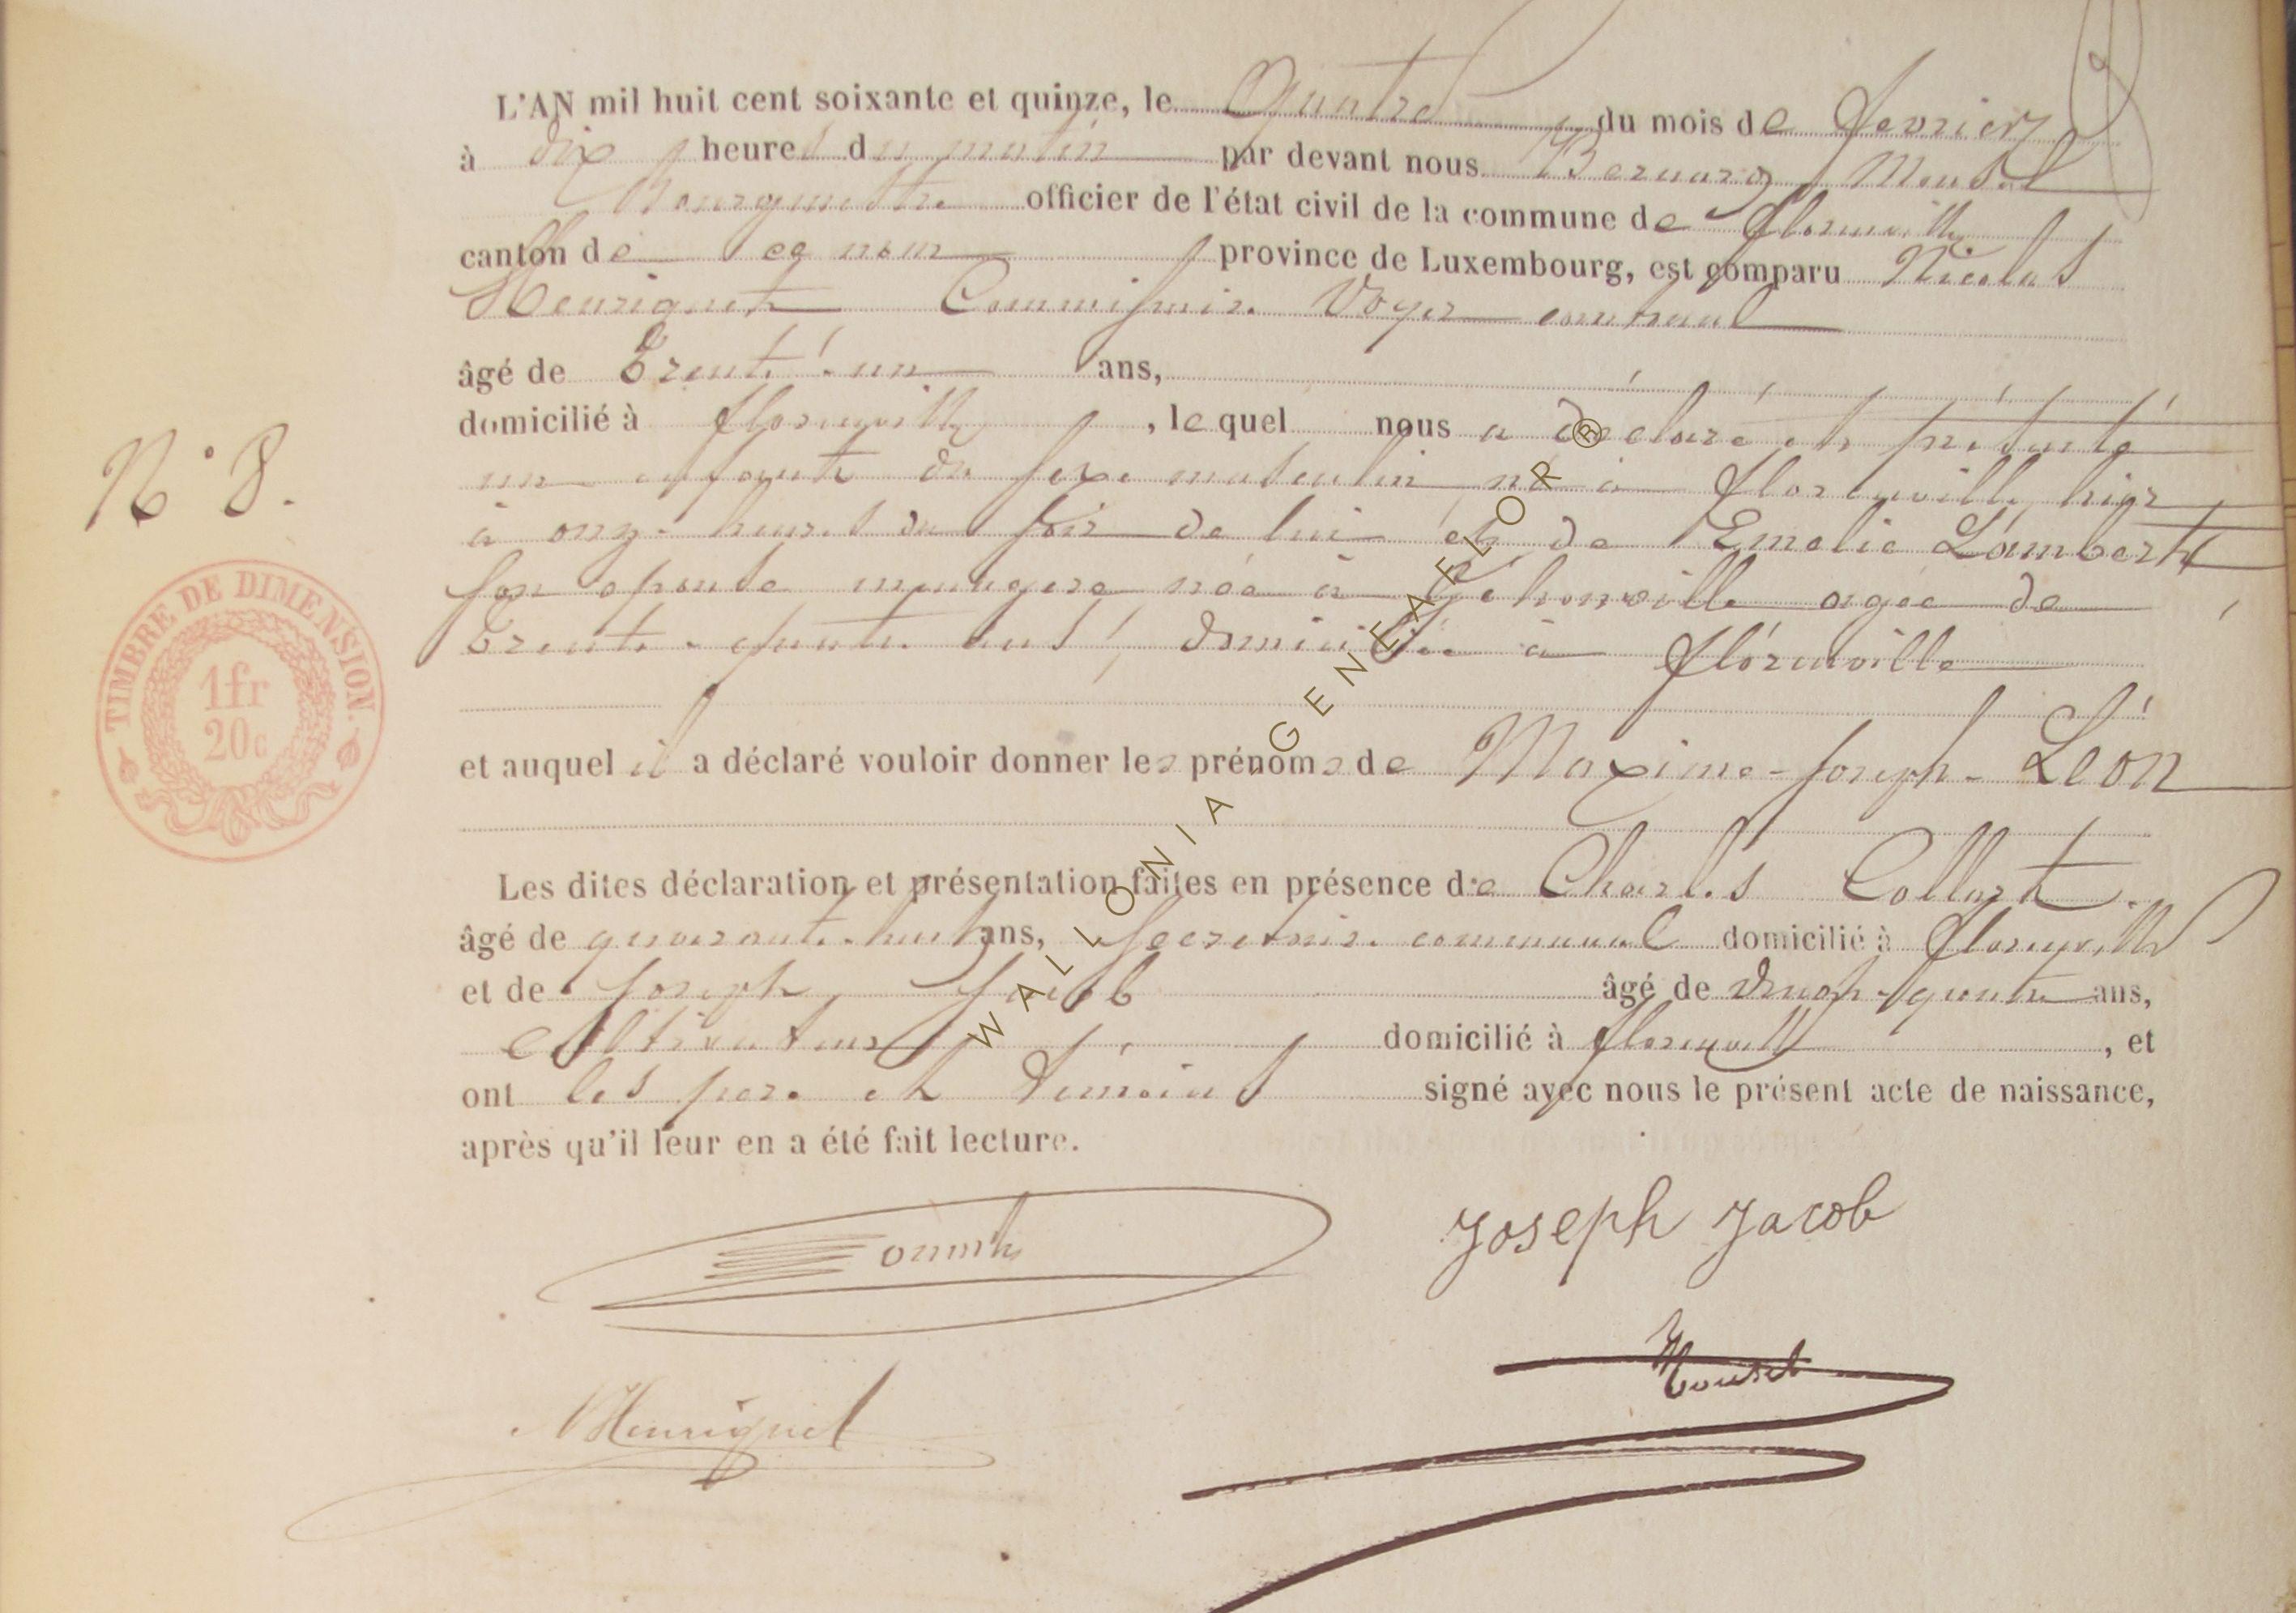 L'AN mil huit cent soixante et quinze, le Quatre du mois de fevrier
à dix heures du matin par devant nous Bernard Mousel
Bourgmestre officier de l'état civil de la commune de florenville
canton de province de Luxembourg, est comparu Nicolas
Henriquet Commissaire Voyer cantonal
âgé de Trente un ans,
domicilié à florenville, lequel nous a déclaré et présenté
un enfant du sexe masculin né à florenville hier
à onze heures du soir de lui et de Emelie Lambert
son epouse menagere née à âgée de
trente quatre ans, domiciliée à florenville
et auquel il a déclaré vouloir donner les prénoms de Maxime-Joseph-Léon
Les dites déclaration et présentation faites en présence de Charles Collart
âgé de quarante-huit ans, secretaire communal domicilié à florenville
et de Joseph Jacob âgé de quatre ans,
cultivateur domicilié à florenville, et
ont les pere et témoins signé avec nous le présent acte de naissance,
après qu'il leur en a été fait lecture.
N° 8.
TIMBRE DE DIMENSION.
1fr
20c
WALLONIA GENEAFLOR ®
Joseph Jacob
Mousel
NHenriquet